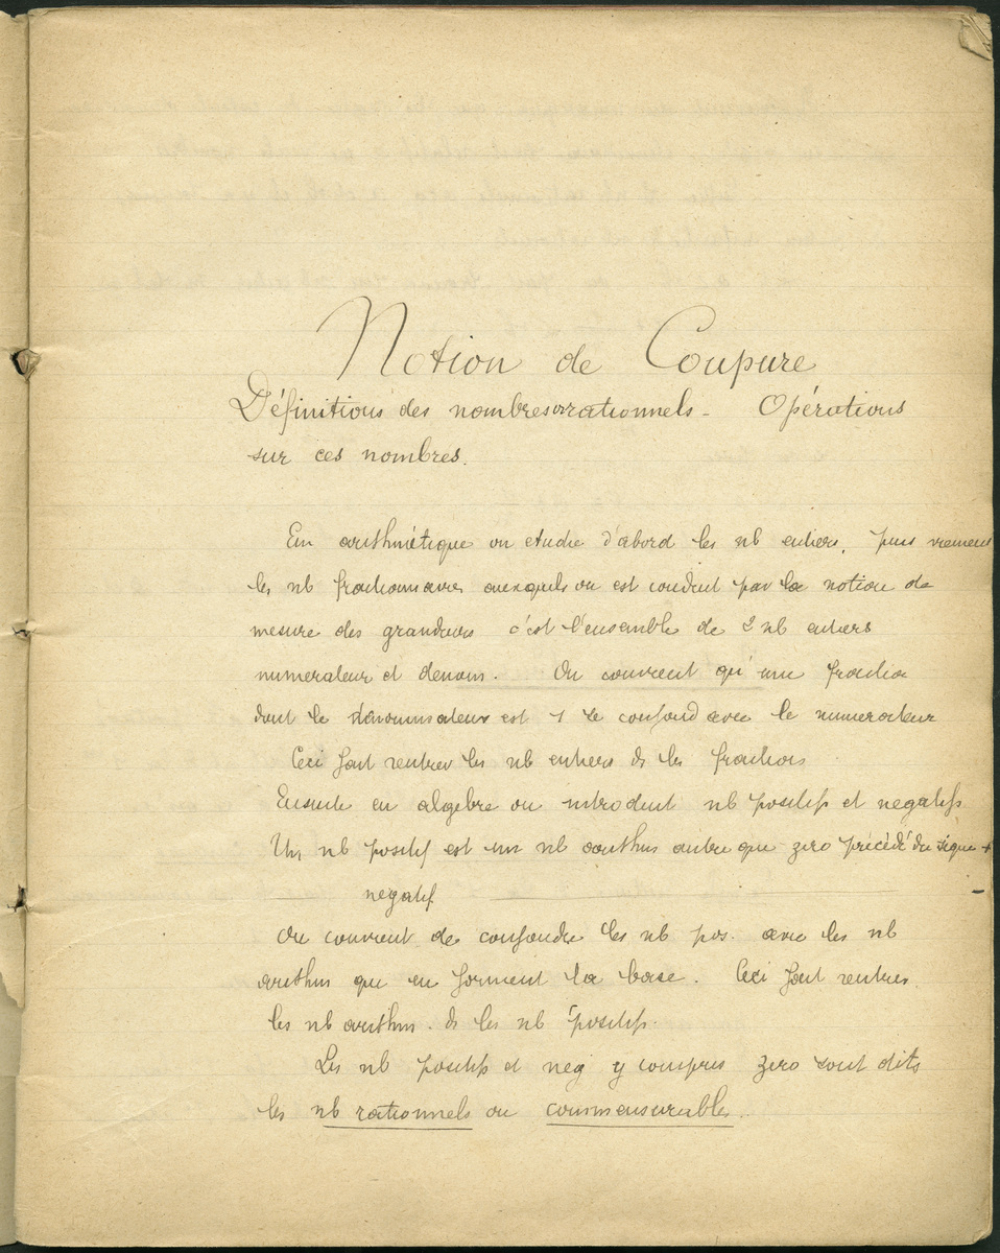 Notion de Coupure
Définitions des nombres irrationnels - Opérations
sur ces nombres.
En arithmétique on etudie d'abord les nb entiers, puis viennent
les nb fractionnaires auxquels on est conduit par la notion de
mesure des grandeurs c'est l'ensemble de 2 nb entiers
numerateur et denom. On convient qu'une fraction
dont le dénominateur est 1 se confond avec le numerateur
Ceci fait rentrer les nb entiers ds les fractions
Ensuite en algebre on introduit nb positifs et negatifs
Un nb positif est un nb arithm autre que zero précédé du signe +
negatif -
On convient de confondre les nb pos. avec les nb
arithm qui en forment la base. Ceci fait rentrer
les nb arithm. ds les nb positifs.
Les nb positifs et neg y compris zero sont dits
les nb rationnels ou commensurables.